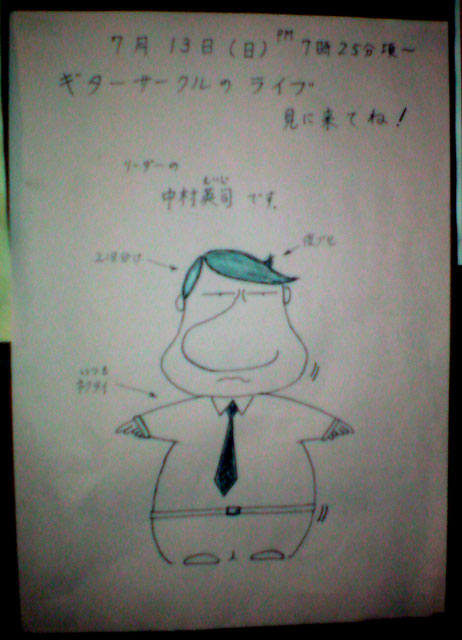 7月13日(日) PM 7時25分頃〜
ギターサークルの ライブ
見に来てね!
リーダーの
えいじ
中村英司 です。
2:8分け
いつも
ネクタイ